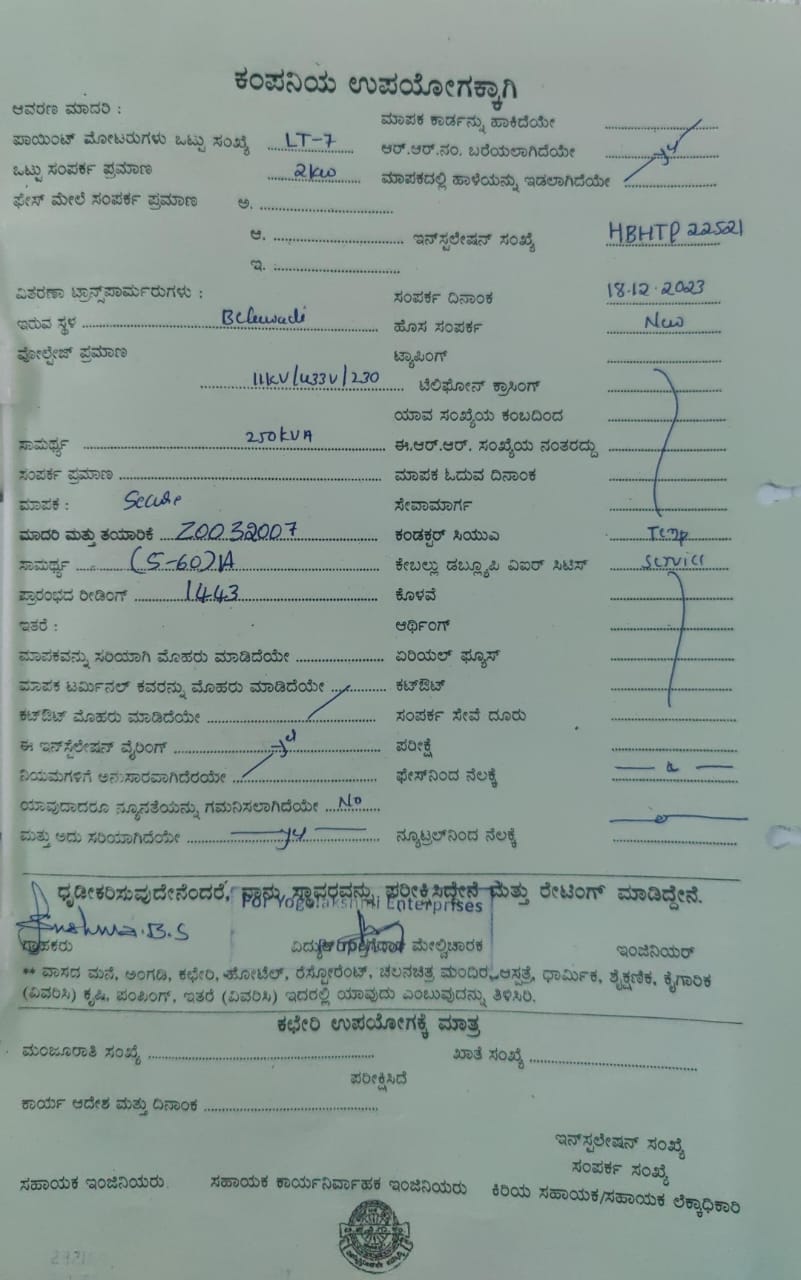 ಕಂಪನಿಯ ಉಪಯೋಗಕ್ಕಾಗಿ
ಆವರಣ ಮಾದರಿ :
ಮಾಪಕ ಕಾರ್ಡನ್ನು ಹಾಕಿದೆಯೇ
ಪಾಯಿಂಟ್ ಮೋಟರುಗಳು ಒಟ್ಟು ಸಂಖ್ಯೆ LT-7
ಆರ್.ಆರ್.ನಂ. ಬರೆಯಲಾಗಿದೆಯೇ
ಒಟ್ಟು ಸಂಪರ್ಕ ಪ್ರಮಾಣ 2kw
ಮಾಪಕದಲ್ಲಿ ಹಾಳೆಯನ್ನು ಇಡಲಾಗಿದೆಯೇ
ಫೇಸ್ ಮೇಲೆ ಸಂಪರ್ಕ ಪ್ರಮಾಣ ಅ.
ಆ. ಇನ್‌ಸ್ಟಲೇಷನ್ ಸಂಖ್ಯೆ HBHTP 22521
ಇ.
ವಿತರಣಾ ಟ್ರಾನ್ಸ್‌ಪಾರ್ಮರುಗಳು :
ಸಂಪರ್ಕ ದಿನಾಂಕ 18.12.2023
ಇರುವ ಸ್ಥಳ
ಹೊಸ ಸಂಪರ್ಕ New
ವೋಲ್ಟೇಜ್ ಪ್ರಮಾಣ
ಟ್ಯಾಪಿಂಗ್
11kV/433V/230 ಟೆಲಿಫೋನ್ ಕ್ರಾಸಿಂಗ್
ಯಾವ ಸಂಖ್ಯೆಯ ಕಂಬದಿಂದ
ಸಾಮರ್ಥ್ಯ 250kVA
ಈ.ಆರ್.ಆರ್. ಸಂಖ್ಯೆಯ ನಂತರದ್ದು
ಸಂಪರ್ಕ ಪ್ರಮಾಣ
ಮಾಪಕ ಓದುವ ದಿನಾಂಕ
ಮಾಪಕ : Secure
ಸೇವಾಮಾರ್ಗ
ಮಾದರಿ ಮತ್ತು ತಯಾರಿಕೆ Z0032007
ಕಂಡಕ್ಟರ್ ಸಿಯುಎ Temp
ಸಾಮರ್ಥ್ಯ (5-60)A
ಕೇಬಲ್ಲು ಡಬ್ಲ್ಯೂಪಿ ವಿಐರ್ ಸಿಟಿಸ್ Service
ಪ್ರಾರಂಭದ ರೀಡಿಂಗ್ 1443
ಕೊಳವೆ
ಇತರೆ :
ಆರ್ಥಿಂಗ್
ಮಾಪಕವನ್ನು ಸರಿಯಾಗಿ ಮೊಹರು ಮಾಡಿದೆಯೇ
ಏರಿಯಲ್ ಫ್ಯೂಸ್
ಮಾಪಕ ಟರ್ಮಿನಲ್ ಕವರನ್ನು ಮೊಹರು ಮಾಡಿದೆಯೇ
ಕಟ್‌ಔಟ್
ಕಟ್‌ಔಟ್ ಮೊಹರು ಮಾಡಿದೆಯೇ
ಸಂಪರ್ಕ ಸೇವೆ ದೂರು
ಈ ಇನ್‌ಸ್ಟಲೇಷನ್ ವೈರಿಂಗ್
ಪರೀಕ್ಷೆ
ನಿಯಮಗಳಿಗೆ ಅನುಸಾರವಾಗಿದೆರಯೇ
ಫೇಸ್‌ನಿಂದ ನೆಲಕ್ಕೆ
ಯಾವುದಾದರೂ ನ್ಯೂನತೆಯನ್ನು ಗಮನಿಸಲಾಗಿದೆಯೇ No
ಮತ್ತು ಅದು ಸರಿಯಾಗಿದೆಯೇ
ನ್ಯೂಟ್ರಲ್‌ನಿಂದ ನೆಲಕ್ಕೆ
ಧೃಡೀಕರಿಸುವುದೇನೆಂದರೆ, ನಾನು ಸ್ಥಾವರವನ್ನು ಪರೀಕ್ಷಿಸಿದ್ದೇನೆ ಮತ್ತು ರೇಟಿಂಗ್ ಮಾಡಿದ್ದೇನೆ.
For Yogalakshmi Enterprises
ಗ್ರಾಹಕರು
ಮೇಲ್ವಿಚಾರಕ
ಇಂಜಿನಿಯರ್
** ವಾಸದ ಮನೆ, ಅಂಗಡಿ, ಕಛೇರಿ, ಹೋಟೆಲ್, ರೆಸ್ಟೋರೆಂಟ್, ಚಲನಚಿತ್ರ ಮಂದಿರ, ಆಸ್ಪತ್ರೆ, ಧಾರ್ಮಿಕ, ಶೈಕ್ಷಣಿಕ, ಕೈಗಾರಿಕ
(ವಿವರಿಸಿ) ಕೃಷಿ, ಪಂಪಿಂಗ್, ಇತರೆ (ವಿವರಿಸಿ) ಇದರಲ್ಲಿ ಯಾವುದು ಎಂಬುವುದನ್ನು ತಿಳಿಸಿರಿ.
ಕಛೇರಿ ಉಪಯೋಗಕ್ಕೆ ಮಾತ್ರ
ಮಂಜೂರಾತಿ ಸಂಖ್ಯೆ
ಖಾತೆ ಸಂಖ್ಯೆ
ಪರೀಕ್ಷಿಸಿದೆ
ಕಾರ್ಯ ಆದೇಶ ಮತ್ತು ದಿನಾಂಕ
ಇನ್‌ಸ್ಟಲೇಷನ್ ಸಂಖ್ಯೆ
ಸಂಪರ್ಕ ಸಂಖ್ಯೆ
ಸಹಾಯಕ ಇಂಜಿನಿಯರು
ಸಹಾಯಕ ಕಾರ್ಯನಿರ್ವಾಹಕ ಇಂಜಿನಿಯರು
ಕಿರಿಯ ಸಹಾಯಕ/ಸಹಾಯಕ ಲೆಕ್ಕಾಧಿಕಾರಿ